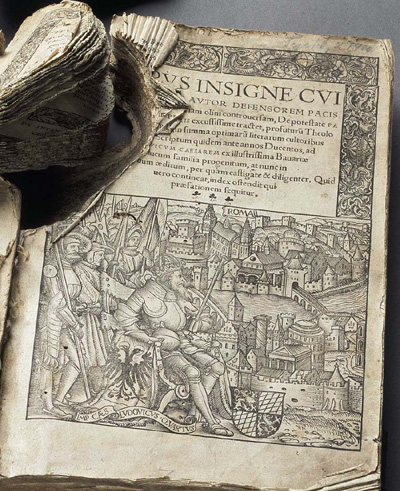 PVS INSIGNE CVI
AVTOR DEFENSOREM PACIS
iam olim controuersam, De potestate PA
excussissime tractet, profuturũ Theolo
summa optimarũ literarum cultoribus
Scriptum quidem ante annos Ducentos, ad
VICVM CAESAREM ex illustrissima Bauariæ
ducum familia progenitum, at nunc in
æditum, per quam castigate & diligenter. Quid
uero contineat, index ostendit qui
præfationem sequitur.
ROMA
IMP CAES LVDOVICVS QVARTVS